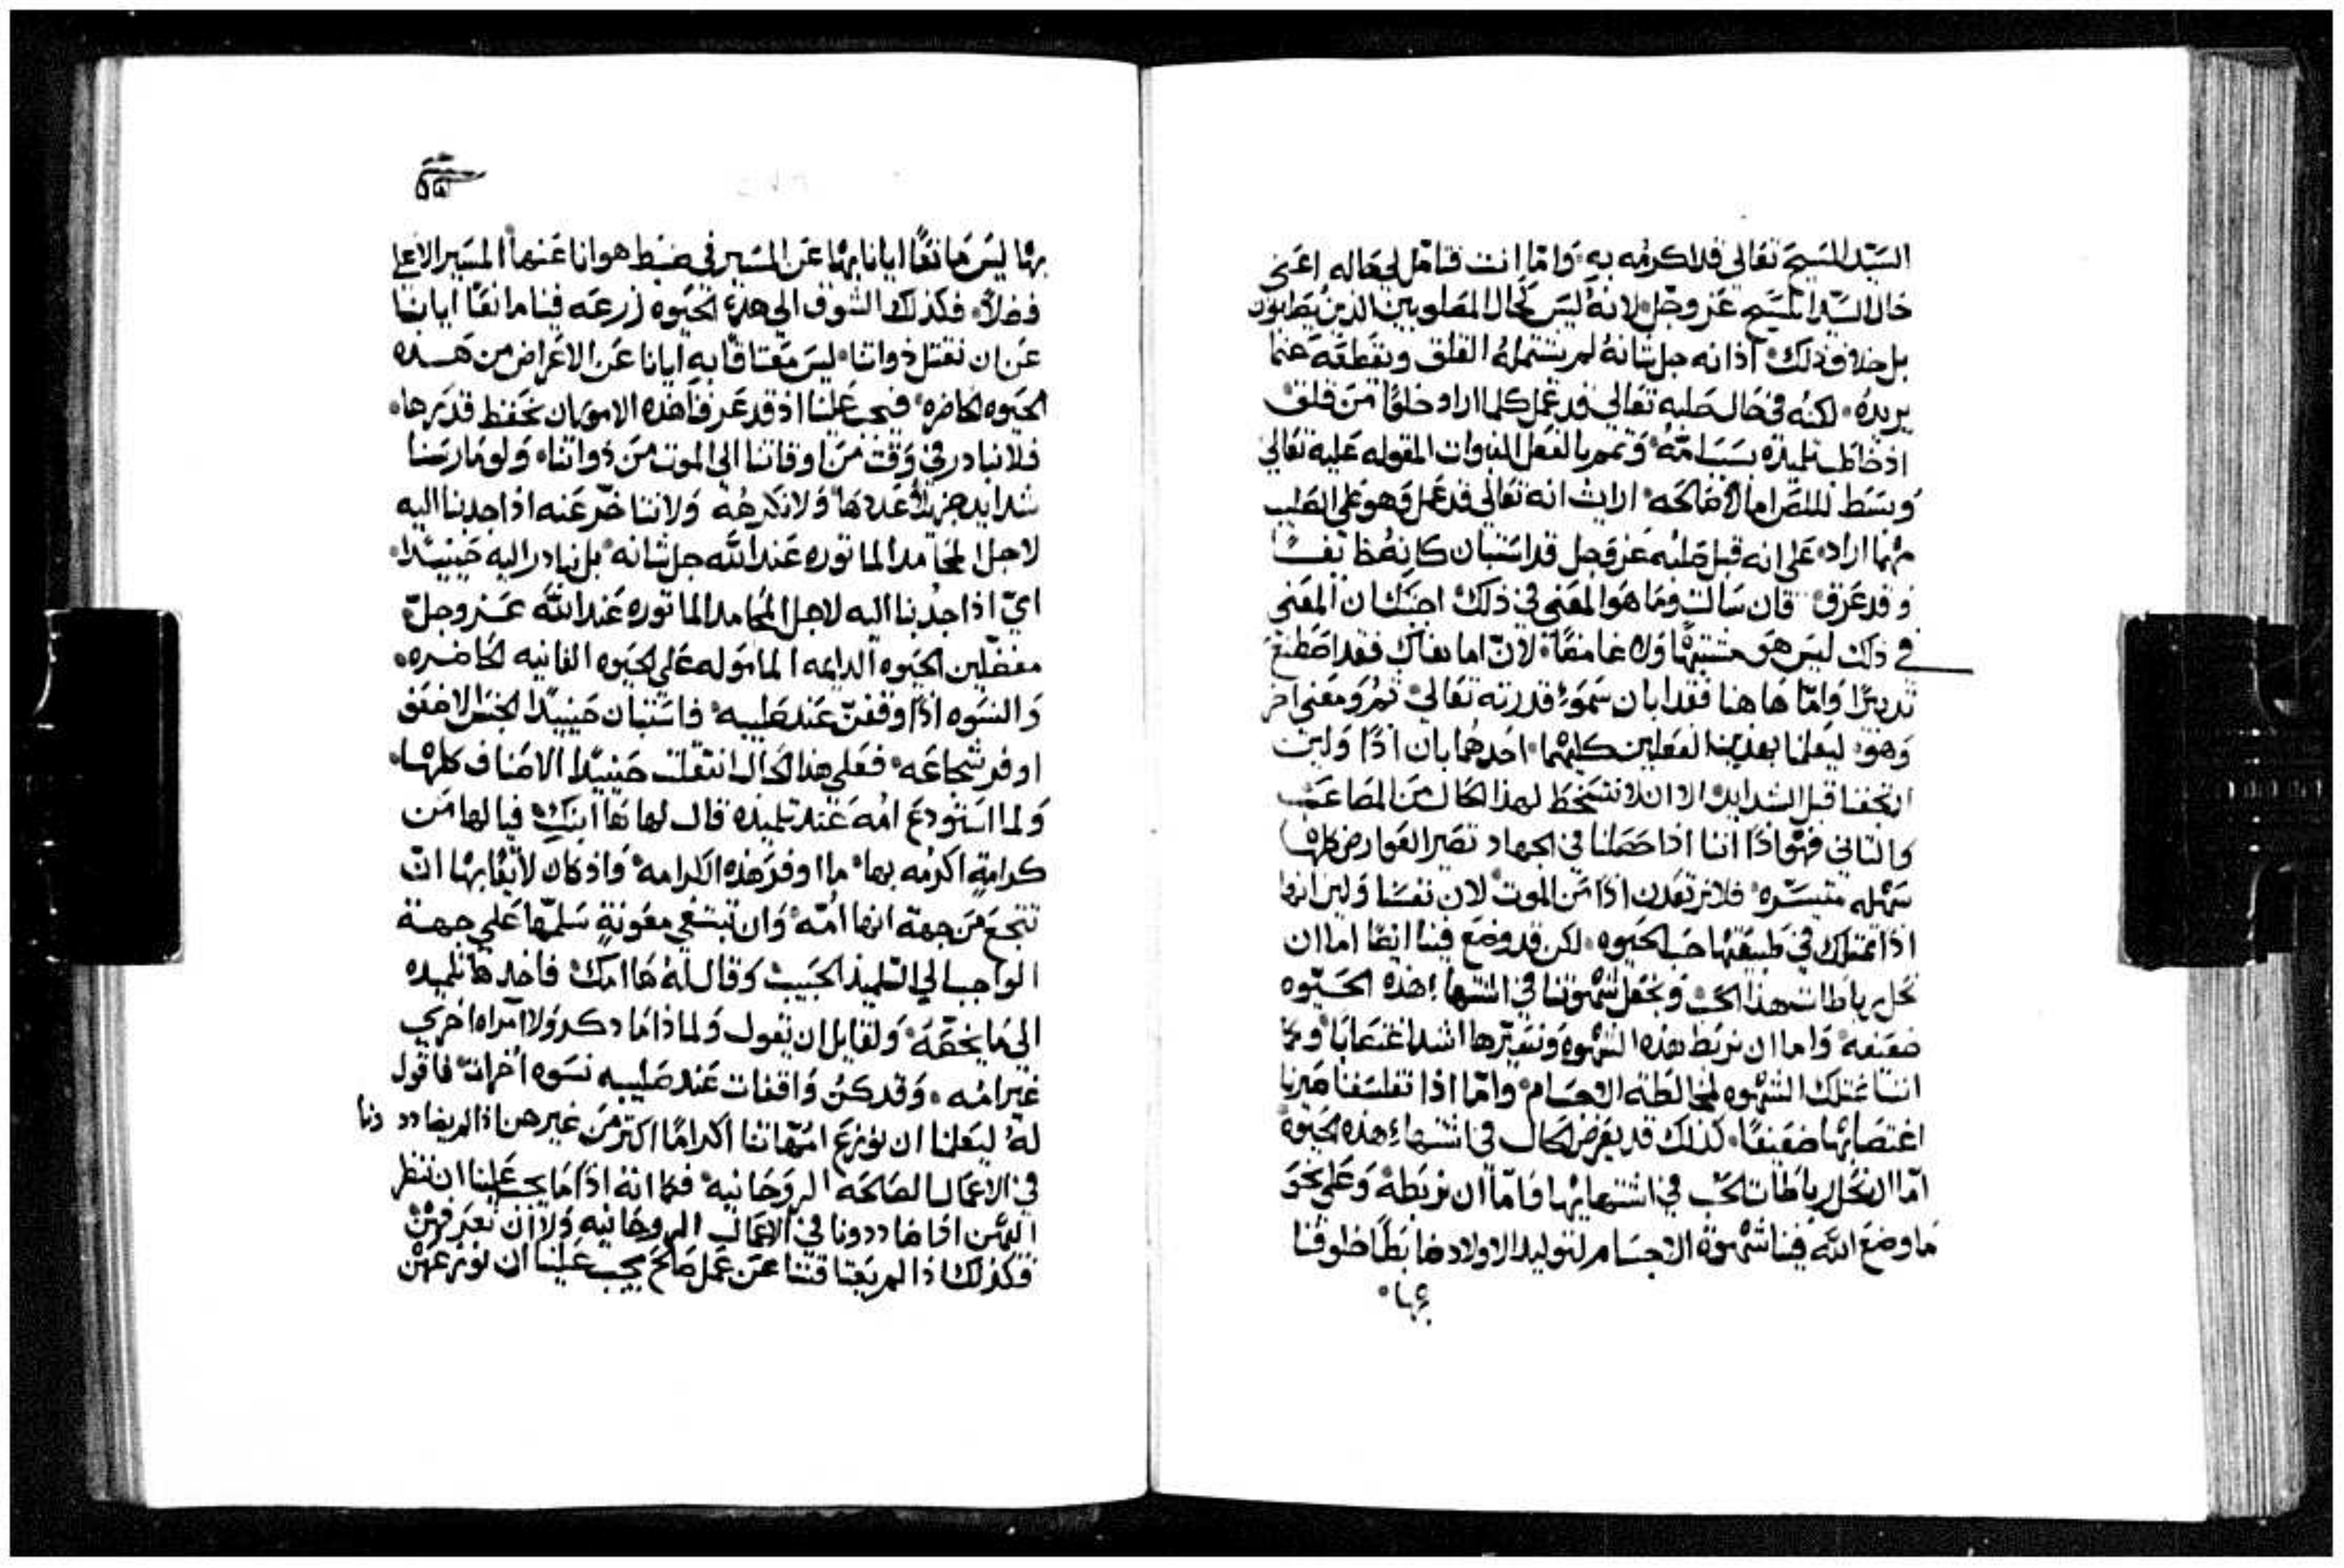 السيد المسيح تعالى قد اكرمه به وامّا انت فتامّل لي حاله اعني
حال السيد المسيح عز وجل لانه ليس كحال المصلوبين الذين يصلبون
بل خلاف ذلك اذ انه جل شانهُ لم يشتمله القلق ويقطعه عما
يريدهُ لكنه في حال صلبه تعالى قد عمل كلما اراد خلوًا من قلق
اذ خاطب تلميذه بسبب امّه وتمم بالفعل النبوات المقوله عليه تعالى
وبسط للص اما لا صالحه ارايت انه تعالى قد عمل وهو على الصليب
مهما اراد على انه قبل صلبه عز وجل قد استبان كانه يحط نفسًا
وقد عرق فان سالت وما هو المعني في ذلك اجبتك ان المعني
في ذلك ليس هو مشتبهًا ولا غامضًا لانّ اما هناك فقد اصطنع
تدبيرًا وامّا هاهنا فقد ابان سمو قدرته تعالى ثم ومعني اخر
وهو ليعلمنا بهذين الفعلين كليهما احدهما بان اذًا ولين
ارتجفنا قبل الشدايد الا ان لا نتسخط لهذا الحال من المصاعب
والثاني فهو اذًا اننا اذا حصلنا في الجهاد تصير العوارض كلها
سهله متيسّره فلا نرتعدن اذًا من الموت لان نفسنا ولين انها
اذًا تمتلك في طبيعتها حب الحيوه لكن قد وضع فينا ايضًا اما ان
نحل رباطات هذا الحب ونجعل شهوتنا في اشتهاء هذه الحيوه
ضعيفه واما ان نربط هذه الشهوه ونصيّرها اشد اغتصابًا وكما
اننا نمتلك الشهوه لمخالطة الاجسام وامّا اذا تفلسفنا صيرنا
اغتصابها ضعيفًا كذلك قد يعرض الحال في اشتهاء هذه الحيوة
امّا ان نحل رباطات الحب في اشتهايها وامّا ان نربطهُ وعلى نحو
ما وضع الله فينا شهوة الاجسام لتوليد الاولاد ضابطًا خلوفنا
بها
بها ليس مانعًا ايانا بها عن المسير في ضبط هوانا عنها المسير الاعلى
فضلًا فكذلك الشوق الى هذه الحيوه زرعه فينا مانعًا ايانا
عن ان نقتل ذواتنا ليس معتاقًا به ايانا عن الاعراض من هذه
الحيوه الحاضره فيجب علينا اذ قد عرفنا هذه الامور ان نحفظ قدرها
فلا نبادر في وقت من اوقاتنا الى الموت من ذواتنا ولو مارسنا
شدايد جزيلًا عددها ولا نكرهه ولا نتاخر عنه اذا جذبنا اليه
لاجل المحامد الماثوره عند الله جل شانه بل نبادر اليه حينيذًا
ايّ اذا جذبنا اليه لاجل المحامد الماثوره عند الله عز وجلّ
مفضّلين الحيوه الدايمه المامولة على الحيوه الفانيه الحاضره
والنسوه اذًا وقفنّ عند صليبه فاستبان حينيذًا الجنس الاضعف
اوفر شجاعه فعلى هذا الحال انتقلت حينيذًا الاصناف كلها
ولما استودع امّه عند تلميذه قال لها ها ابنك فيا لها من
كرامةٍ اكرمه بها ما اوفر هذه الكرامه واذ كان لايقًا بها انّ
تتجع من جهة انها امّه وان تبتغي معونةٍ سلمّها على جهة
الواجب الى التلميذ الحبيب وقال لهُ ها امك فاخدها تلميذه
الى ما يخصّه ولقايل ان يقول ولماذا ما ذكر ولا امراه اخري
غير امّه وقد كنّ واقفات عند صليبه نسوه اخرات فاقول
لهُ ليعلمنا ان نوزع امّهاتنا اكرامًا اكثر من غيرهن اذ الم يضاددونا
في الاعمال الصالحه الروحانيه فكما انه اذًا ما يجب علينا ان ننظر
اليهّن اذا ضاددونا في الاعمال الروحانيه ولا ان نعرفهنّ
فكذلك اذا لم يعتاقننا عن عمل صالح يجب علينا ان نوزعهنّ